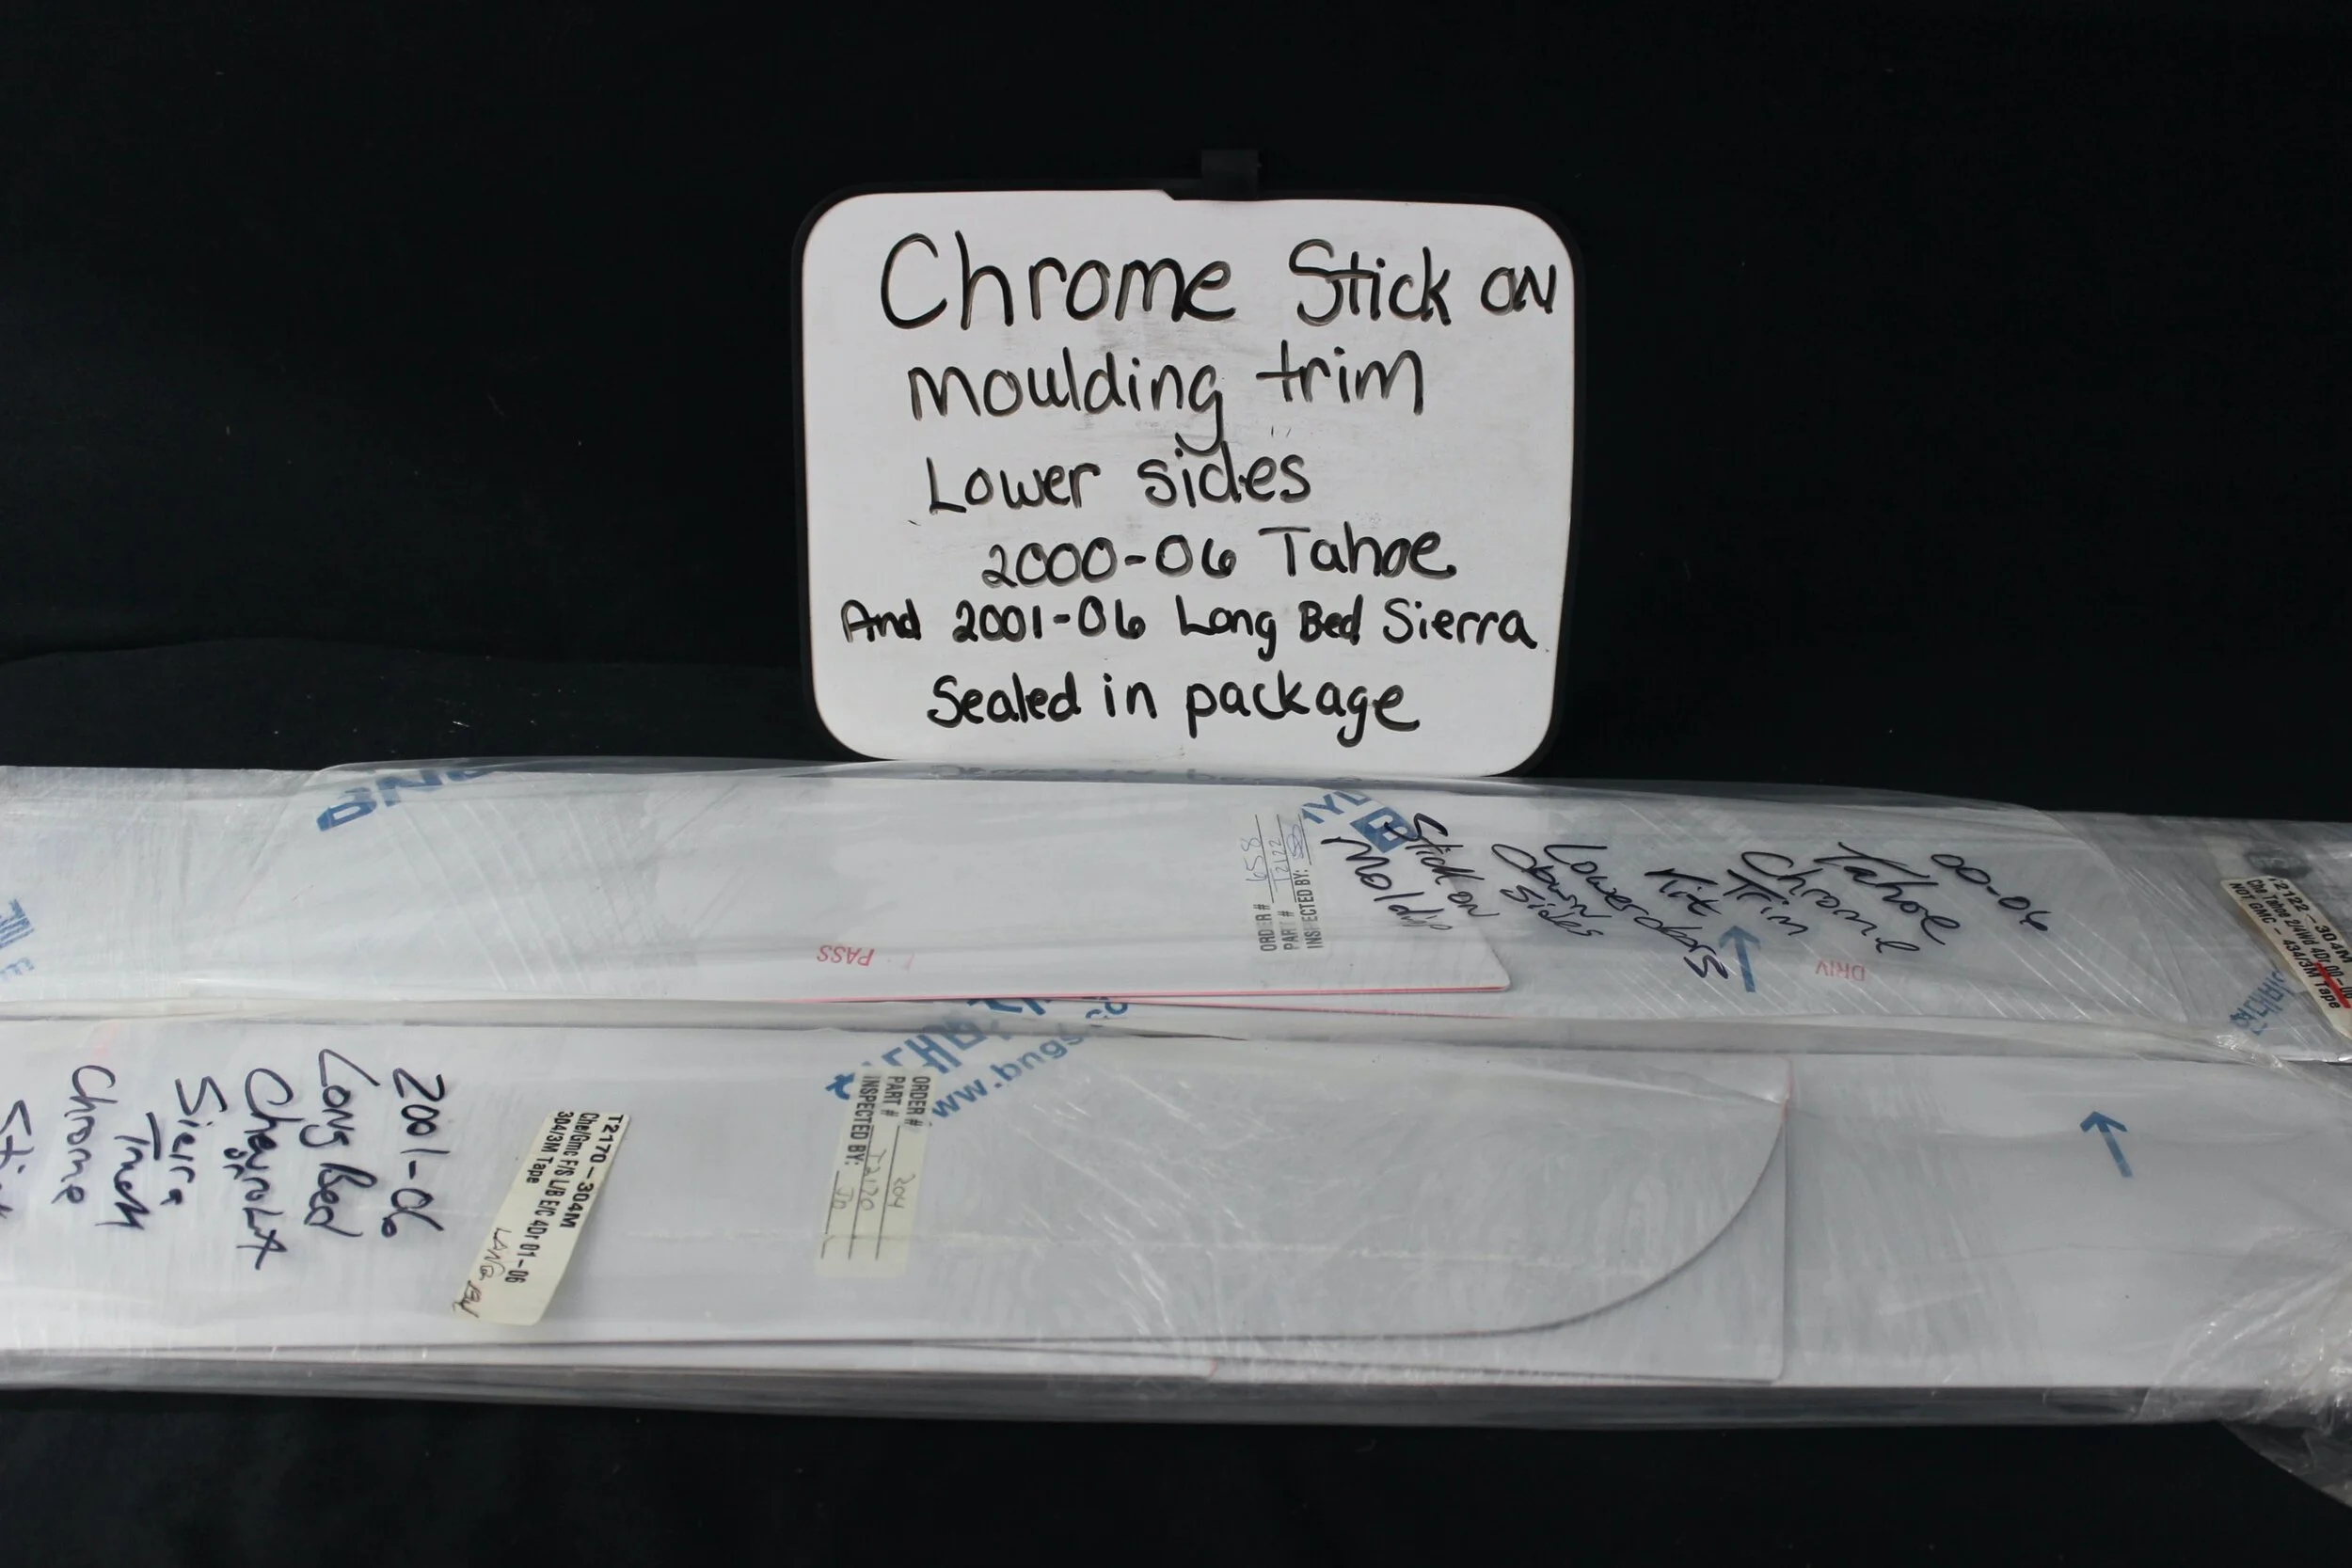 Chrome Stick ON
moulding trim
Lower sides
2000-06 Tahoe
And 2001-06 Long Bed Sierra
Sealed in package
00-06
Tahoe
Chrome
Trim
Kit
Lower doors
Down
Sides
Stick on
Molding
ORDER # 658
PART # T2122
INSPECTED BY:
PASS
DRIV
T2122-304M
NOT GMC - 434/3M Tape
2001-06
Long Bed
Chevrolet
or
Sierra
Truck
Chrome
T2170-304M
Che/Gmc F/S L/B E/C 4Dr 01-06
304/3M Tape
ORDER # 204
PART # T2170
INSPECTED BY: JD
www.bngs